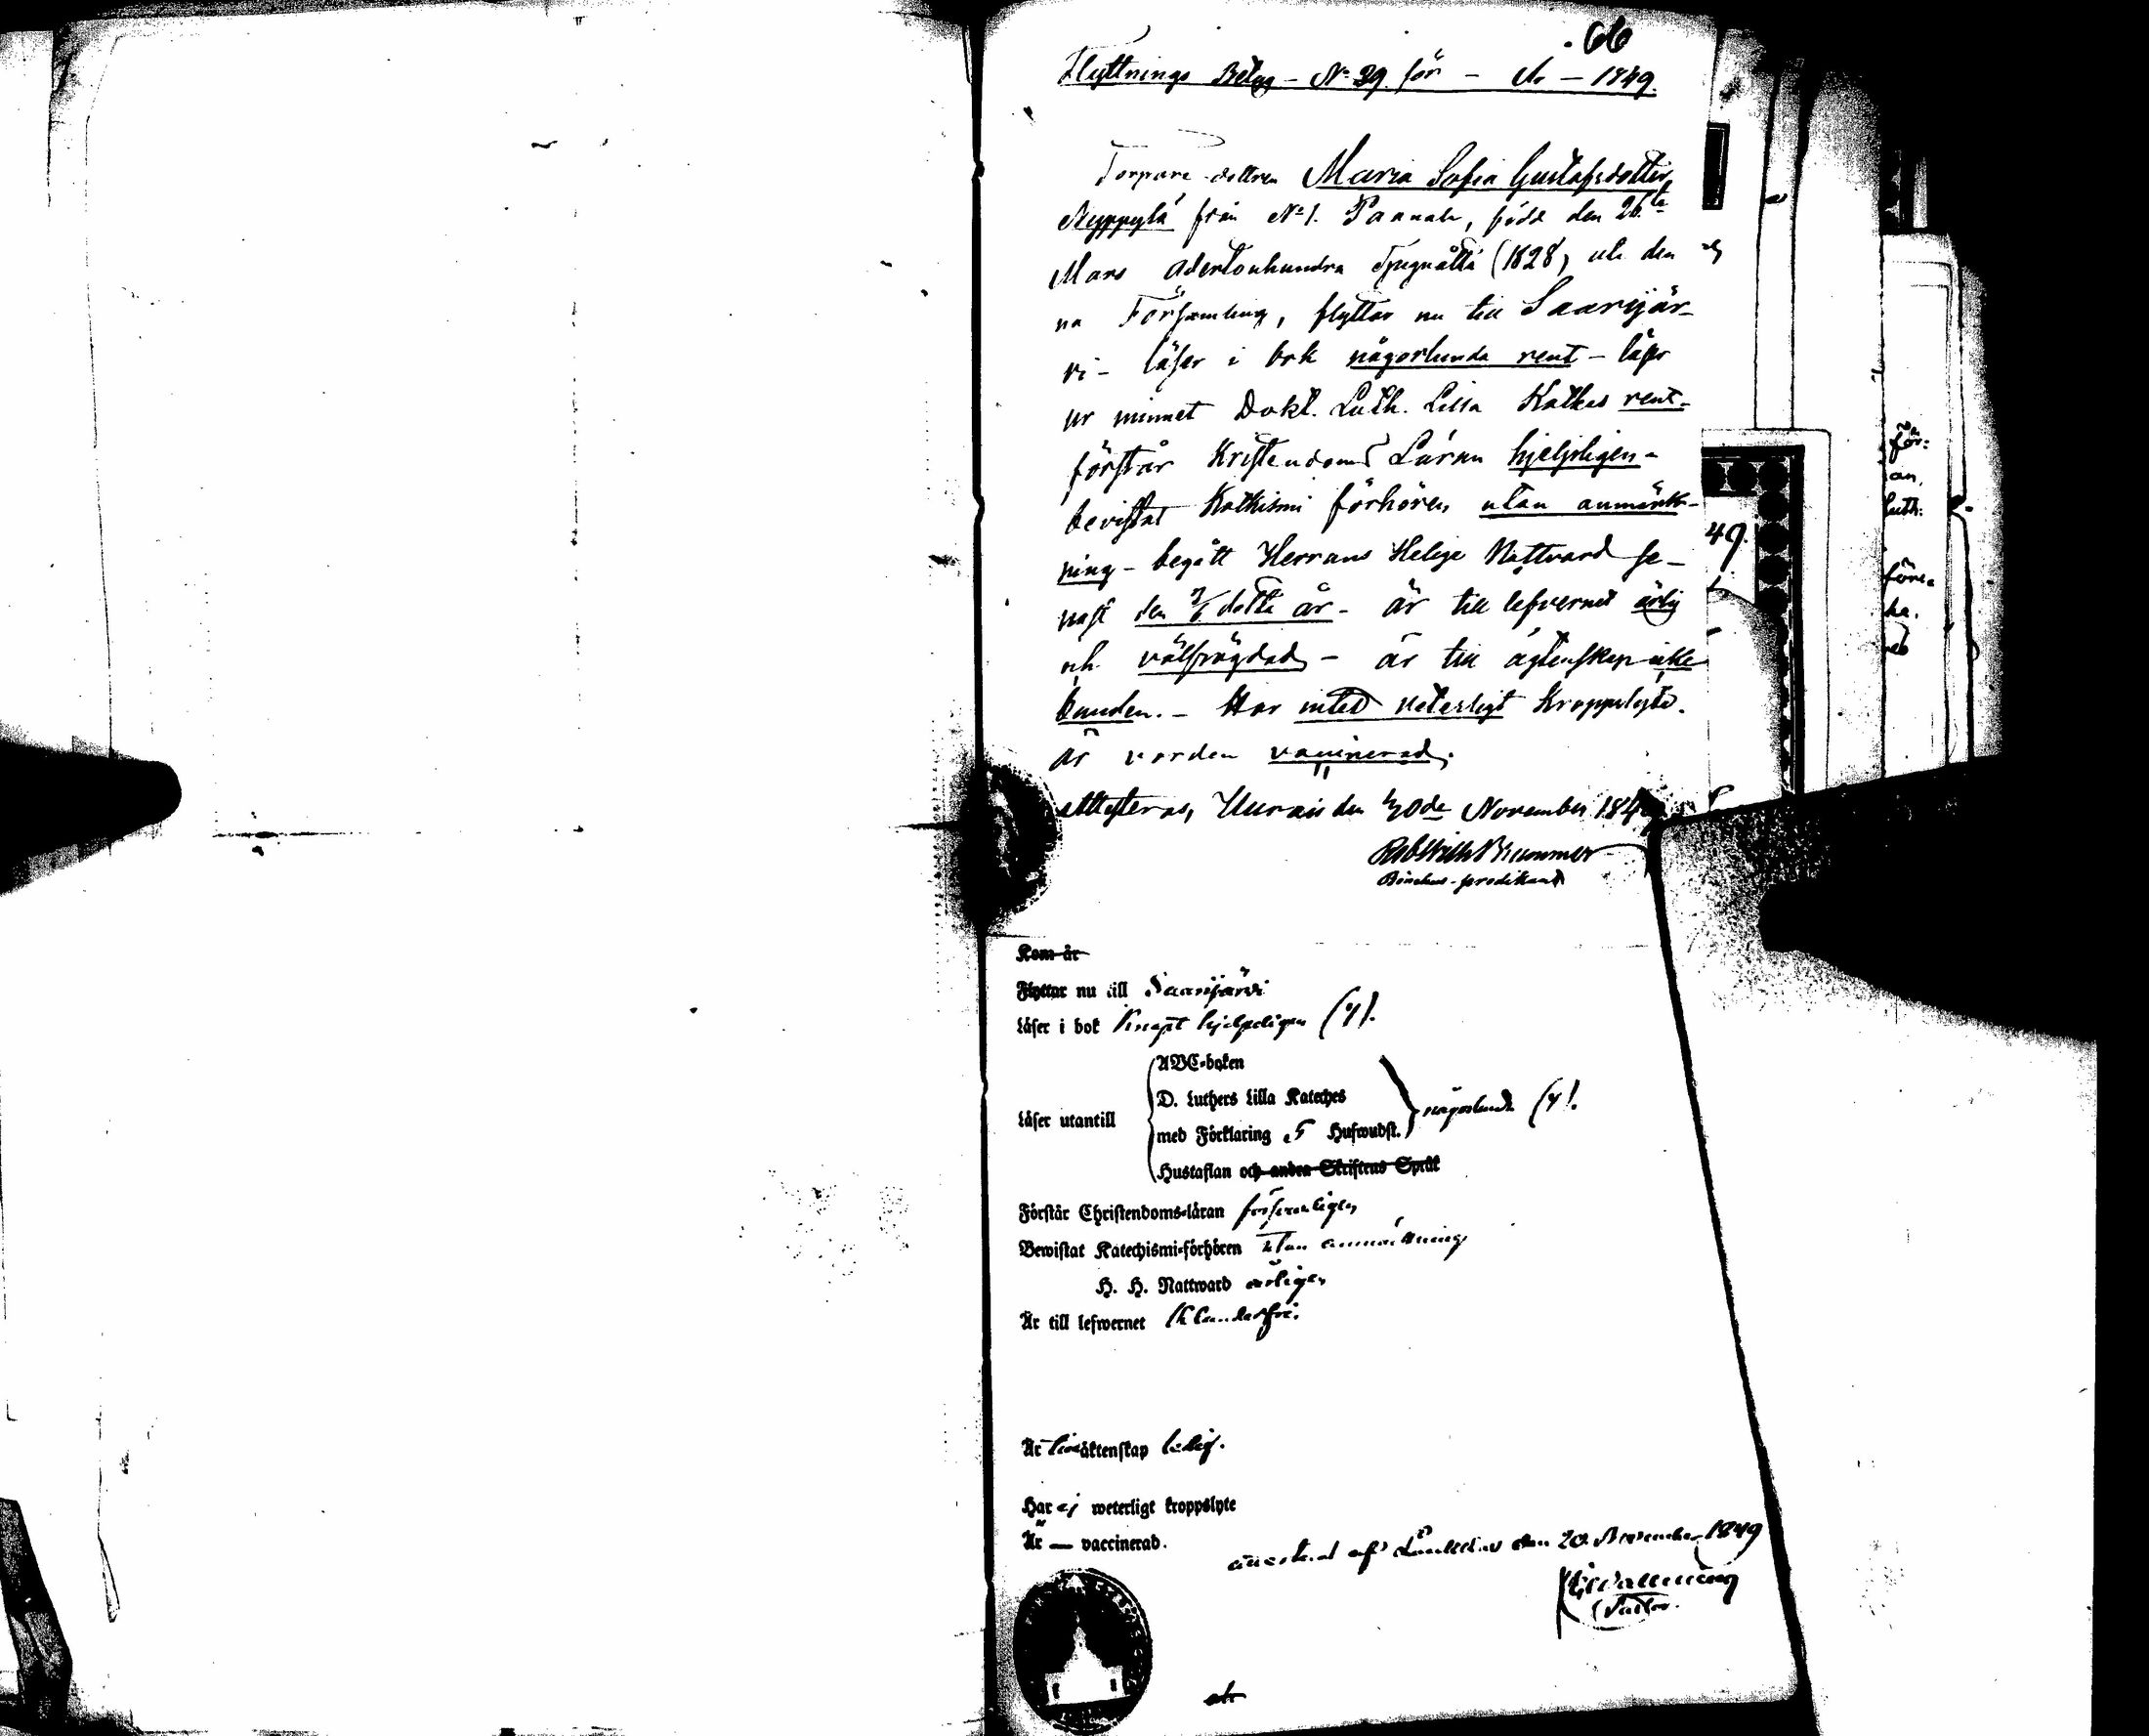 66
Flyttnings Betyg - No 29. för - År - 1849.
Torpare dottren Maria Sofia Gustafsdotter
Nyppylä från No 1. Paanala, född den 26te
Mars Adertonhundra Tjuguåtta (1828) uti den
na Församling, flyttar nu till Saarijär-
vi - läser i bok någorlunda rent - läser
ur minnet Dokt. Luth. Lilla Katkes rent -
förstår Kristendoms Läran hjelpligen -
bevistat Katkismi förhören utan anmärk-
ning - begått Herrans Helige Nattvard se-
nast den detta år - är till lefvernet ärlig
och välfrägdad - är till ägtenskap icke
bunden. - Har intet veterligt Kroppslyte.
är vorden vaccinerad.
Attesteras, Uurais den 30de November 184
Brummer
predikant
Kom år
Flyttar nu till Saarijärvi
Läser i bok knapt hjelpeligen (4).
ABC-boken
D. Luthers Lilla Kateches
Läser utantill
med Förklaring 5 Hufwudst.
någorlunda (4).
Hustaflan och andra Skriftens Språk
Förstår Christendoms-läran försvarligen
Bewistat Katechismi-förhören utan anmärkning
H. H. Nattward årligen
Är till lefwernet klanderfri.
Är till äktenskap ledig.
Har ej weterligt kroppslyte
Är — vaccinerad.
den 20 November 1849
Pastor.
49.
för:
an,
luth:
före-